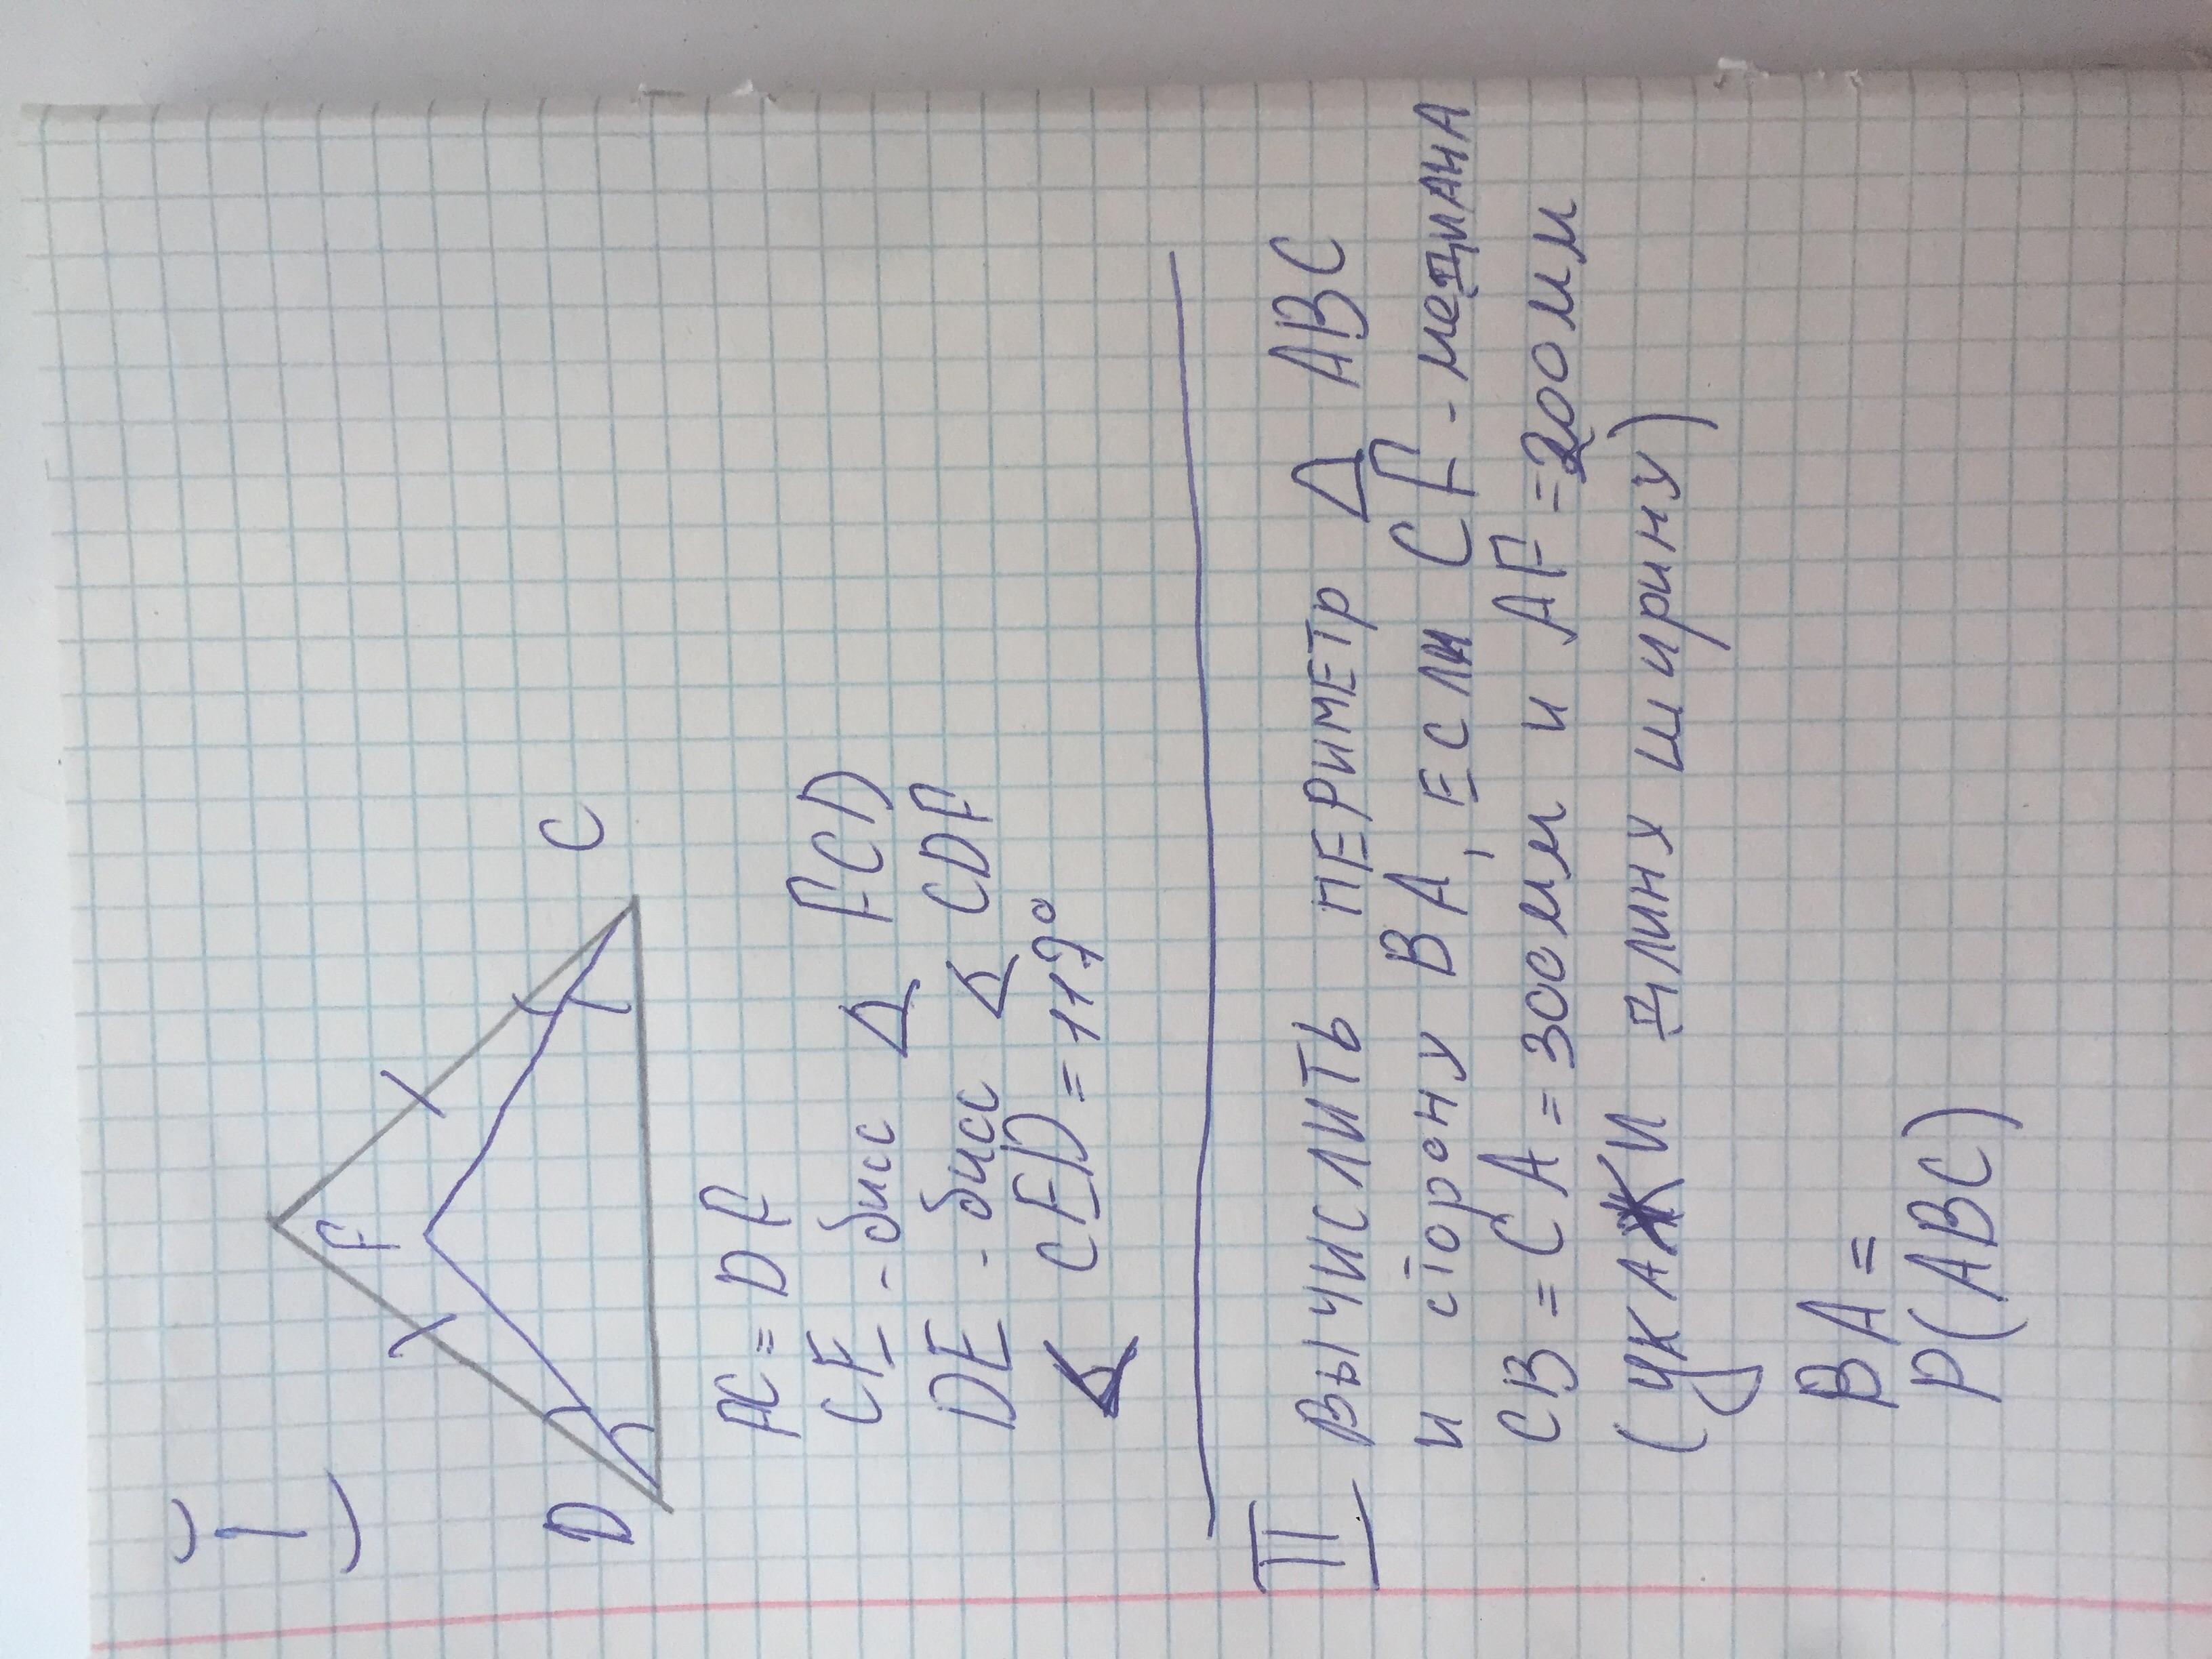 (1)
F
D C
FC = DF
CE - бисс Δ FCD
DE - бисс Δ CDF
∠ CED = 117°
II Вычислить периметр Δ ABC
и сторону BA, если CF - медиана
CB = CA = 300мм и AF = 200мм
(укажи длину ширину)
BA =
P(ABC)